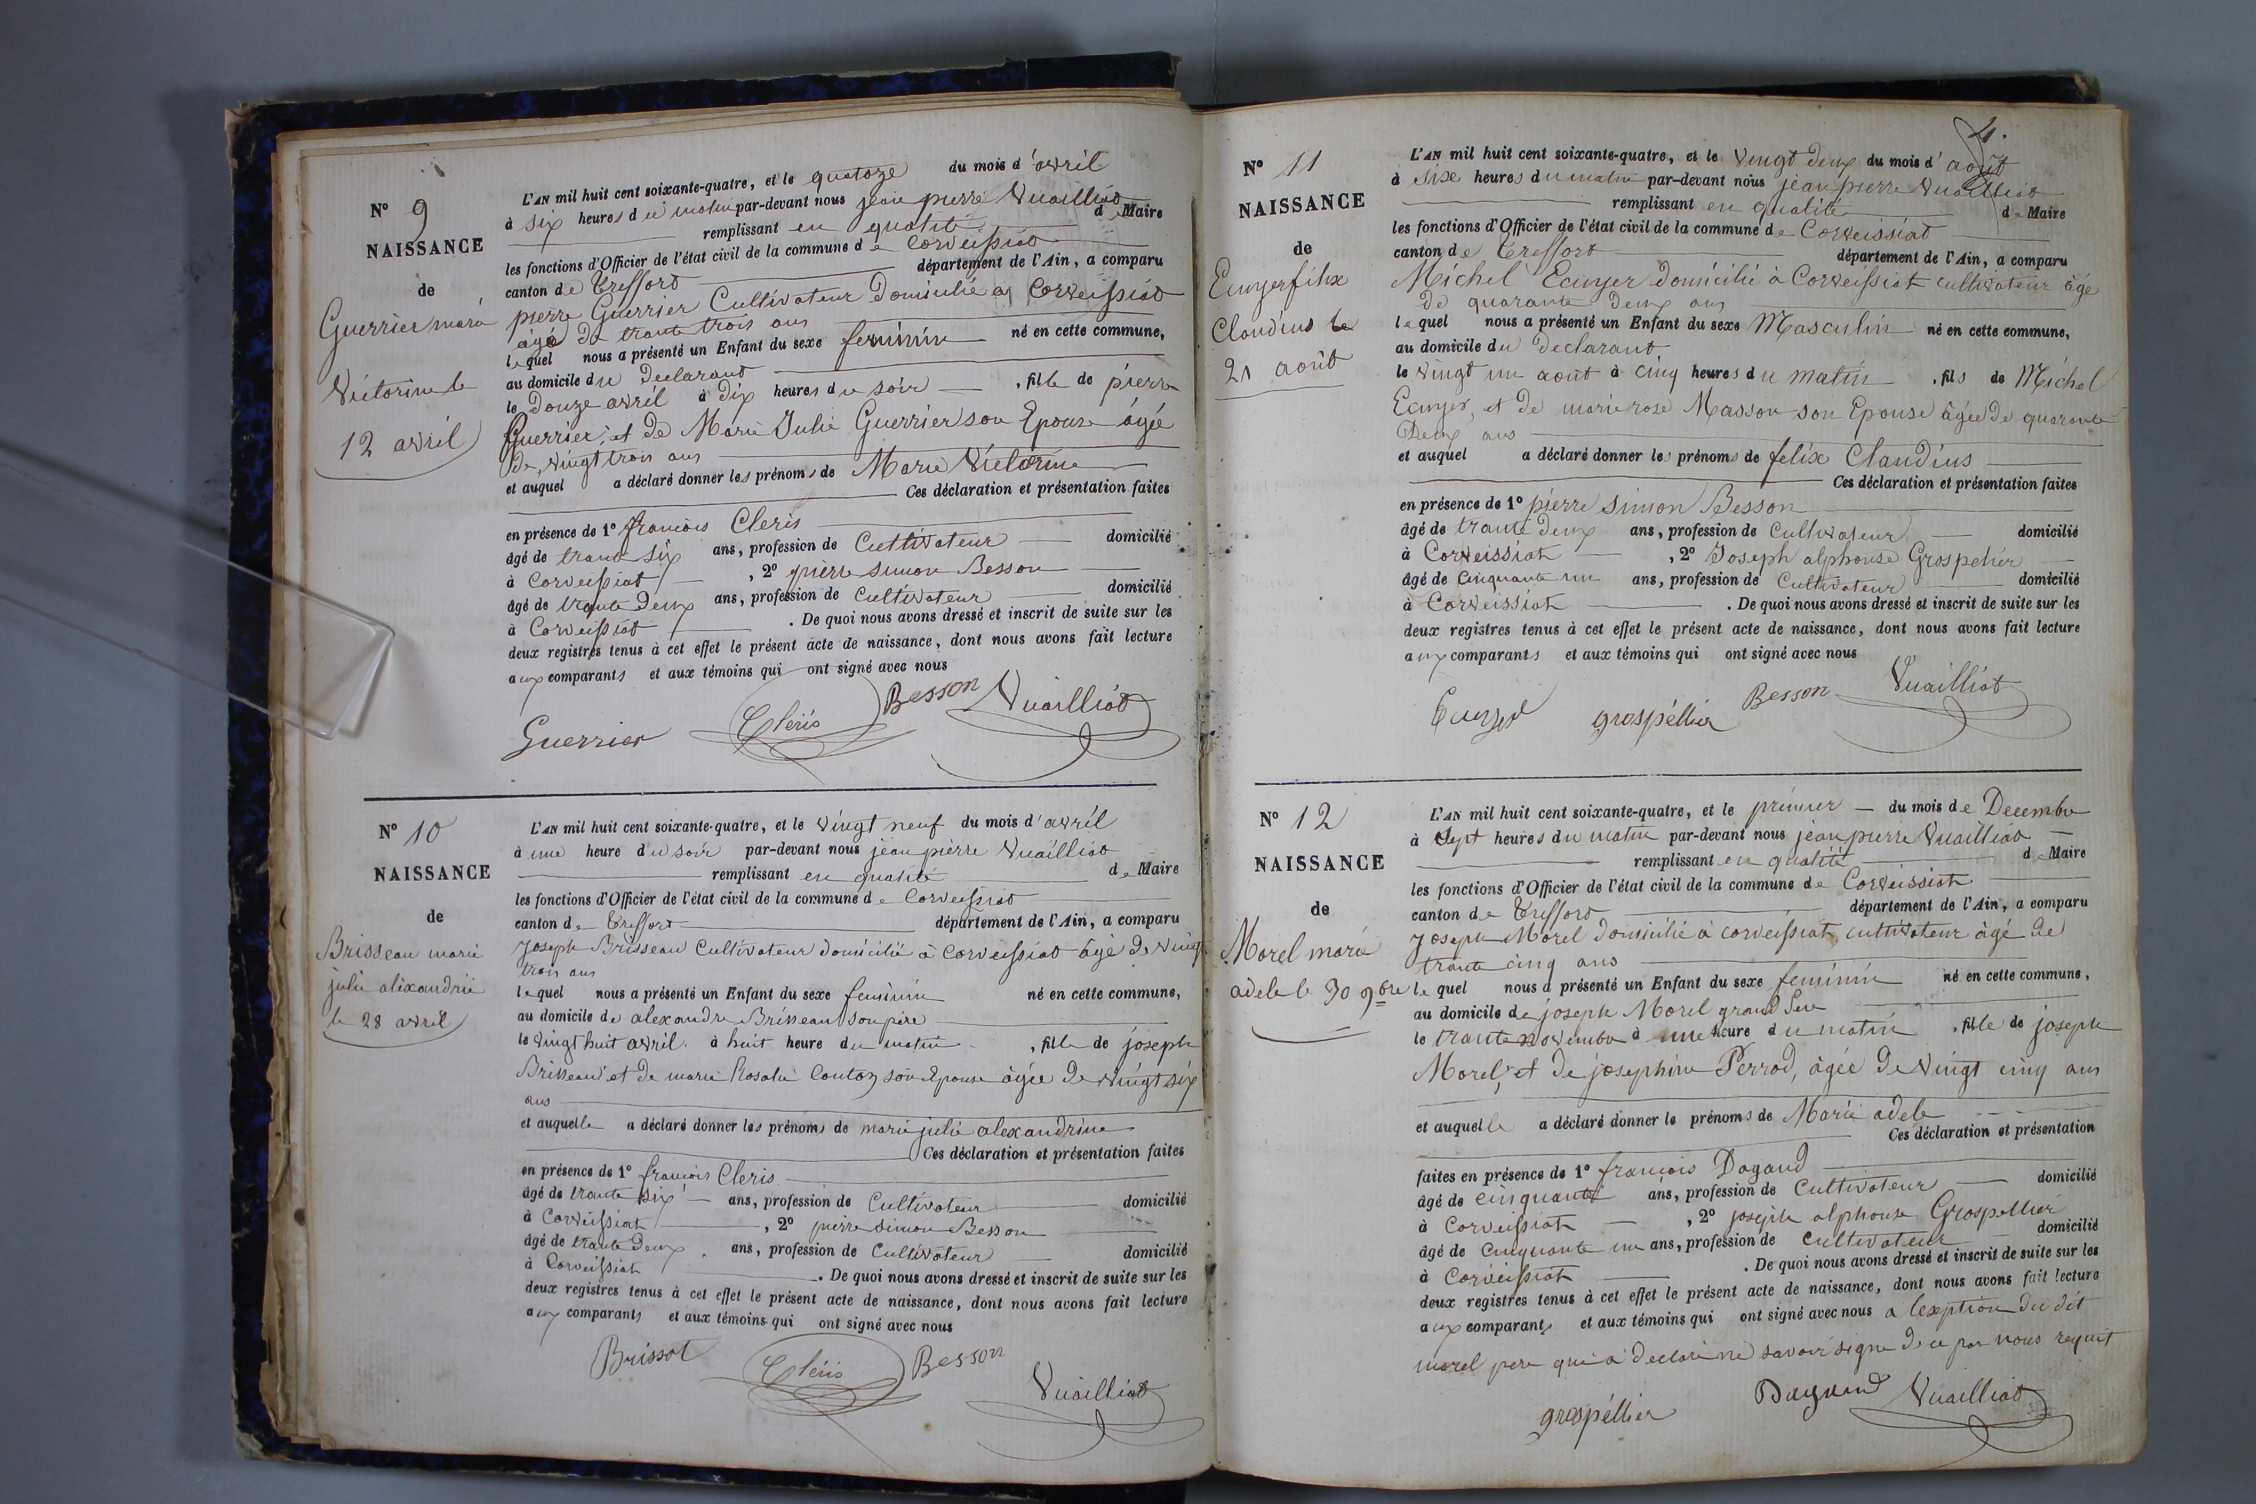 N° 9
NAISSANCE
de
Guerrier marie
Victorine le
12 avril
L'AN mil huit cent soixante-quatre, et le quatorze du mois d'avril
à six heures du matin par-devant nous jean pierre Vuailliat
remplissant en qualité de Maire
les fonctions d'Officier de l'état civil de la commune de Corveissiat
canton de Treffort département de l'Ain, a comparu
pierre Guerrier Cultivateur Domicilié a Corveissiat
âgé de trante trois ans
lequel nous a présenté un Enfant du sexe feminin né en cette commune,
au domicile du Declarant
le Douze avril à Dix heures du soir, fille de pierre
Guerrier, et de Marie Julie Guerrier son Epouse âgée
de vingt trois ans
et auquel a déclaré donner les prénoms de Marie Victorine
Ces déclaration et présentation faites
en présence de 1° françois Cleris
âgé de trante six ans, profession de Cultivateur domicilié
à Corveissiat, 2° pierre simon Besson
âgé de trante Deux ans, profession de Cultivateur domicilié
à Corveissiat. De quoi nous avons dressé et inscrit de suite sur les
deux registres tenus à cet effet le présent acte de naissance, dont nous avons fait lecture
aux comparants et aux témoins qui ont signé avec nous
Guerrier Cléris Besson Vuailliat
N° 10
NAISSANCE
de
Brisseau marie
julie alixandrie
le 28 avril
L'AN mil huit cent soixante-quatre, et le vingt neuf du mois d'avril
à une heure du soir par-devant nous jean pierre Vuailliat
remplissant en qualité de Maire
les fonctions d'Officier de l'état civil de la commune de Corveissiat
canton de Treffort département de l'Ain, a comparu
Joseph Brisseau Cultivateur domicilié à Corveissiat âgé de vingt
trois ans
lequel nous a présenté un Enfant du sexe feminin né en cette commune,
au domicile de alexandre Brisseau son père
le vingt huit avril à huit heure du matin, fille de joseph
Brisseau et de marie Rosalie Coutoz son Epouse âgée de vingt six
ans
et auquelle a déclaré donner les prénoms de marie julie alexandrine
Ces déclaration et présentation faites
en présence de 1° françois Cleris
âgé de trante six ans, profession de Cultivateur domicilié
à Corveissiat, 2° pierre simon Besson
âgé de trante Deux ans, profession de Cultivateur domicilié
à Corveissiat. De quoi nous avons dressé et inscrit de suite sur les
deux registres tenus à cet effet le présent acte de naissance, dont nous avons fait lecture
aux comparants et aux témoins qui ont signé avec nous
Brissot Cléris Besson Vuailliat
4.
N° 11
NAISSANCE
de
Ecuyer félix
Claudius le
21 août
L'AN mil huit cent soixante-quatre, et le vingt deux du mois d'août
à sixe heures du matin par-devant nous jean pierre Vuailliat
remplissant en qualité de Maire
les fonctions d'Officier de l'état civil de la commune de Corveissiat
canton de Treffort département de l'Ain, a comparu
Michel Ecuyer domicilié à Corveissiat cultivateur âgé
de quarante deux ans
lequel nous a présenté un Enfant du sexe Masculin né en cette commune,
au domicile du Declarant
le vingt un août à cinq heures du matin, fils de Michel
Ecuyer, et de marie rose Masson son Epouse âgée de quarante
Deux ans
et auquel a déclaré donner les prénoms de felix Claudius
Ces déclaration et présentation faites
en présence de 1° pierre simon Besson
âgé de trante deux ans, profession de Cultivateur domicilié
à Corveissiat, 2° Joseph alphonse Grospelier
âgé de Cinquante un ans, profession de Cultivateur domicilié
à Corveissiat. De quoi nous avons dressé et inscrit de suite sur les
deux registres tenus à cet effet le présent acte de naissance, dont nous avons fait lecture
aux comparants et aux témoins qui ont signé avec nous
Ecuyer grospéllier Besson Vuailliat
N° 12
NAISSANCE
de
Morel marie
adele le 30 9bre
L'AN mil huit cent soixante-quatre, et le premier du mois de Decembre
à Sept heures du matin par-devant nous jean pierre Vuailliat
remplissant en qualité de Maire
les fonctions d'Officier de l'état civil de la commune de Corveissiat
canton de Treffort département de l'Ain, a comparu
Joseph Morel domicilié à corveissiat cultivateur âgé de
trante cinq ans
lequel nous a présenté un Enfant du sexe feminin né en cette commune,
au domicile de joseph Morel grand Père
le trante novembre à une heure du matin, fille de joseph
Morel, et de josephine Perrod, âgée de vingt cinq ans
et auquelle a déclaré donner le prénoms de Marie adele
Ces déclaration et présentation
faites en présence de 1° françois Dagand
âgé de cinquante ans, profession de Cultivateur domicilié
à Corveissiat, 2° joseph alphonse Grospellier
âgé de Cinquante un ans, profession de cultivateur domicilié
à Corveissiat. De quoi nous avons dressé et inscrit de suite sur les
deux registres tenus à cet effet le présent acte de naissance, dont nous avons fait lecture
aux comparants et aux témoins qui ont signé avec nous a lexption du dit
morel pere qui a declaré ne savoir signe de ce par nous requit
grospéllier Dagand Vuailliat